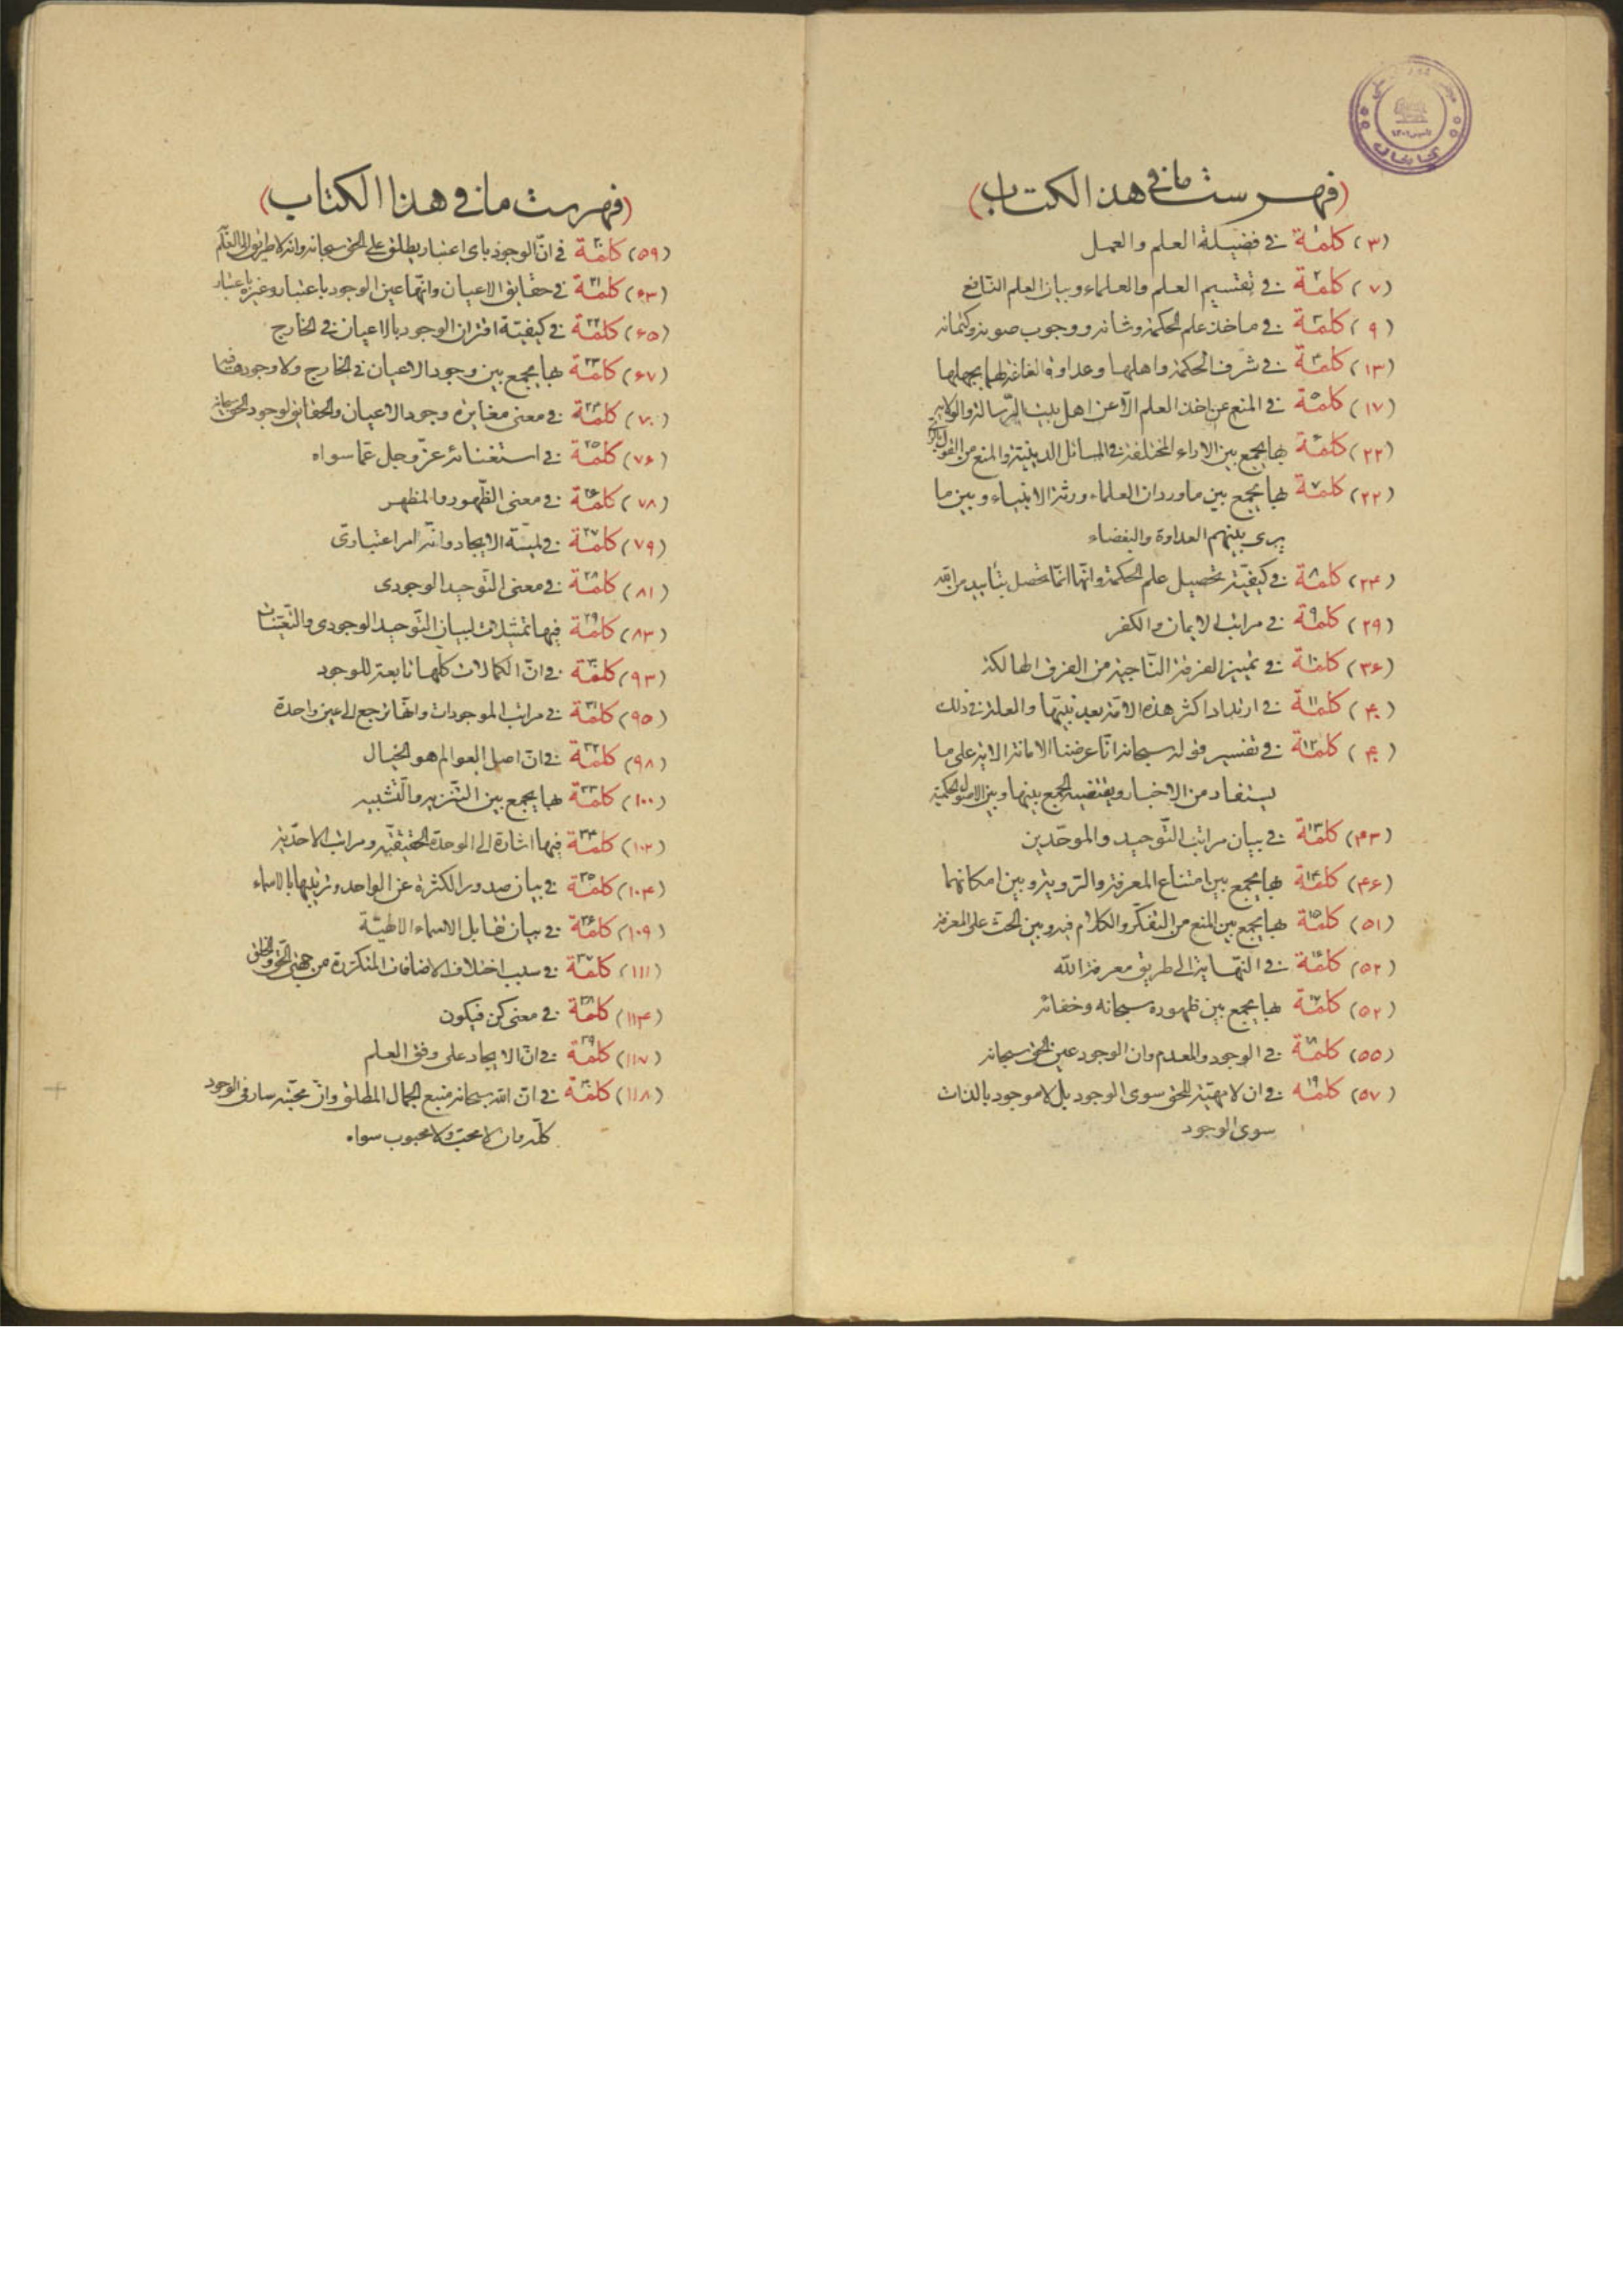 (فهرست مافى هذا الكتاب)
(۳) كلمة ۱ فى فضيلة العلم والعمل
(۷) كلمة ۲ فى تقسيم العلم والعلماء وبيان العلم النافع
(۹) كلمة ۳ فى ماخذ علم الحكمة وشانه ووجوب صونه وكتمانه
(۱۳) كلمة ۴ فى شرف الحكمة واهلها وعداوة الغاغة لهما بجهلها
(۱۷) كلمة ۵ فى المنع عن اخذ العلم الّا عن اهل بيت الرّسالة والولاية
(۲۲) كلمة ۶ بها يجمع بين الاراء المختلفة فى المسائل الدينية والمنع من القول بالرّأى
(۲۲) كلمة ۷ بها يجمع بين ماورد ان العلماء ورثة الانبياء وبين ما
يرى بينهم العداوة والبغضاء
(۲۴) كلمة ۸ فى كيفيّة تحصيل علم الحكمة وانّها انّما تحصل بتأييد من الله
(۲۹) كلمة ۹ فى مراتب الايمان والكفر
(۳۶) كلمة ۱۰ فى تميز الفرقة النّاجية من الفرق الهالكة
(۴۰) كلمة ۱۱ فى ارتداد اكثر هذه الامّة بعد نبيّها والعلة فى ذلك
(۴۰) كلمة ۱۲ فى تفسير قوله سبحانه انّا عرضنا الامانة الاية على ما
يستفاد من الاخبار ويقتضيه الجمع بينها وبين الاصول الحكمية
(۴۳) كلمة ۱۳ فى بيان مراتب التّوحيد والموحّدين
(۴۶) كلمة ۱۴ بها يجمع بين امتناع المعرفة والرّوية وبين امكانهما
(۵۱) كلمة ۱۵ بها يجمع بين المنع من التفكّر والكلام فيه وبين الحث على المعرفة
(۵۲) كلمة ۱۶ فى النّهاية الى طريق معرفة الله
(۵۲) كلمة ۱۷ بها يجمع بين ظهوره سبحانه وخفائه
(۵۵) كلمة ۱۸ فى الوجود والعدم وان الوجود عين الحق سبحانه
(۵۷) كلمه ۱۹ فى ان لا مهيّة للحق سوى الوجود بل لا موجود بالذات
سوى الوجود
(فهرست مافى هذا الكتاب)
(۵۹) كلمة ۲۰ فى انّ الوجود باى اعتبار يطلق على الحق سبحانه وانه لا طريق الى
(۶۳) كلمة ۲۱ فى حقايق الاعيان وانّها عين الوجود باعتبار وغيره باعتبار
(۶۵) كلمة ۲۲ فى كيفيّة اقتران الوجود بالاعيان فى الخارج
(۶۷) كلمة ۲۳ بها يجمع بين وجود الاعيان فى الخارج ولا وجودها فيها
(۷۰) كلمة ۲۴ فى معنى مغايرة وجود الاعيان والحقايق لوجود الحق سبحانه
(۷۶) كلمة ۲۵ فى استغنائه عزّ وجل عمّا سواه
(۷۸) كلمة ۲۶ فى معنى الظّهور والمظهر
(۷۹) كلمة ۲۷ فى لميّة الايجاد وانّه امر اعتبارىّ
(۸۱) كلمة ۲۸ فى معنى التّوحيد الوجودى
(۸۳) كلمة ۲۹ فيها تمثيلات لبيان التّوحيد الوجودى والتّعيّنات
(۹۳) كلمة ۳۰ فى انّ الكمالات كلّها تابعة للوجود
(۹۵) كلمة ۳۱ فى مراتب الموجودات وانّها ترجع الى عين واحدة
(۹۸) كلمة ۳۲ فى انّ اصل العوالم هو الخيال
(۱۰۰) كلمة ۳۳ بها يجمع بين التّنزيه والّتشبيه
(۱۰۲) كلمة ۳۴ فيها اشارة الى الوحدة الحقيقيّه ومراتب الاحّدية
(۱۰۴) كلمة ۳۵ فى بيان صدور الكثرة عن الواحد وترتيبها بالاسماء
(۱۰۹) كلمة ۳۶ فى بيان تقابل الاسماء الالهيّة
(۱۱۱) كلمة ۳۷ فى سبب اختلاف الاضافات المتكررة من جهتى الحّق والخلق
(۱۱۴) كلمة ۳۸ فى معنى كن فيكون
(۱۱۷) كلمة ۳۹ فى انّ الايجاد على وفق العلم
(۱۱۸) كلمة ۴۰ فى انّ الله سبحانه منبع الجمال المطلق وانّ محبّته سار فى الوجود
كلّه وان لا محبّ ولا محبوب سواه